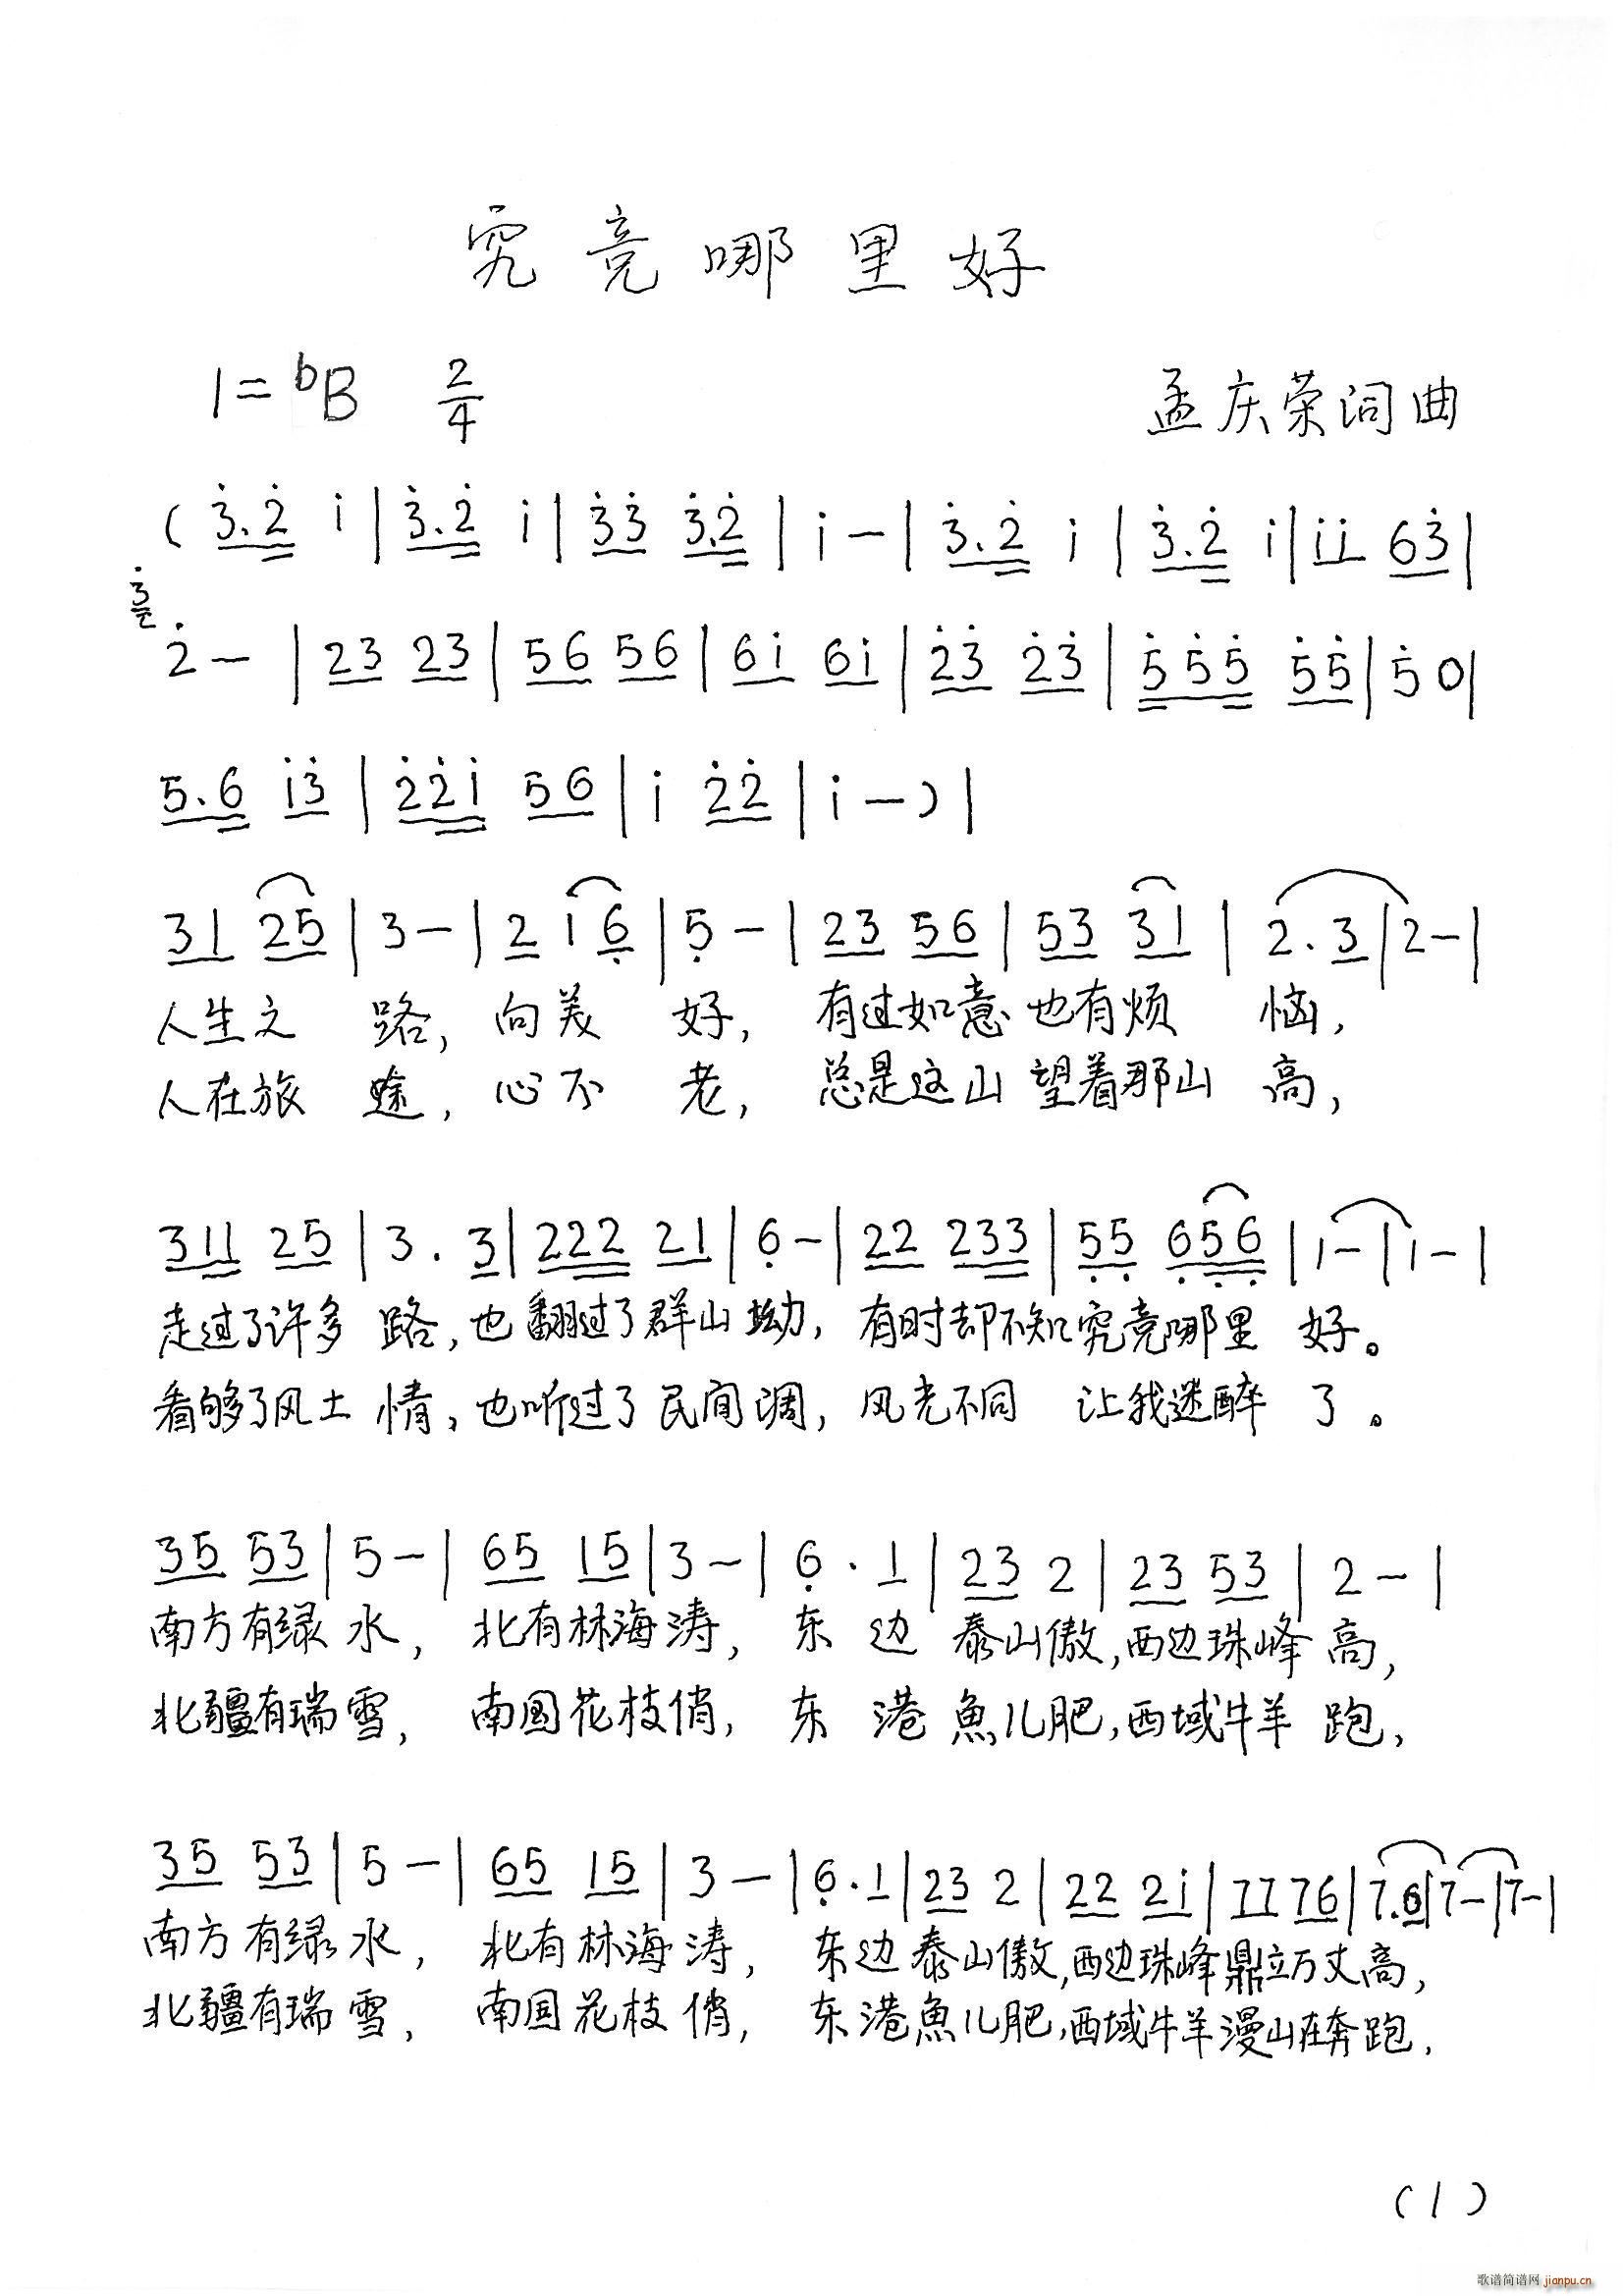 究竟哪里好
1=bB 2/4 孟庆荣词曲
( 3̇.2̇ i | 3̇.2̇ i | 3̇3̇ 3̇.2̇ | i - | 3̇.2̇ i | 3̇.2̇ i | ii 63̇ |
3̇
2̇ - | 23 23 | 56 56 | 6i 6i | 2̇3̇ 2̇3̇ | 5̇5̇5̇ 5̇5̇ | 5̇ 0 |
5.6 i3̇ | 2̇2̇i 56 | i 2̇2̇ | i - ) |
31 25 | 3 - | 2 1 6̣ | 5̣ - | 23 56 | 53 31 | 2.3 | 2 - |
人生之 路, 向美 好, 有过如意也有烦 恼,
人在旅 途, 心不 老, 总是这山望着那山 高,
311 25 | 3 . 3 | 222 21 | 6̣ - | 22 233 | 5̣5̣ 6̣5̣6̣ | 1 - | 1 - |
走过了许多 路,也翻过了群山坳, 有时却不知究竟哪里 好。
看够了风土 情,也听过了民间调, 风光不同 让我迷醉 了。
35 53 | 5 - | 65 15 | 3 - | 6̣ . 1 | 23 2 | 23 53 | 2 - |
南方有绿 水, 北有林海涛, 东 边 泰山傲,西边珠峰 高,
北疆有瑞雪, 南国花枝俏, 东 港 魚儿肥,西域牛羊 跑,
35 53 | 5 - | 65 15 | 3 - | 6̣ . 1 | 23 2 | 22 2i | 77 76 | 7.6 | 7 - | 7 - |
南方有绿 水, 北有林海 涛, 东边泰山傲,西边珠峰鼎立万丈高,
北疆有瑞 雪, 南国花枝 俏, 东港魚儿肥,西域牛羊漫山在奔跑,
(1)
歌谱简谱网 jianpu.cn